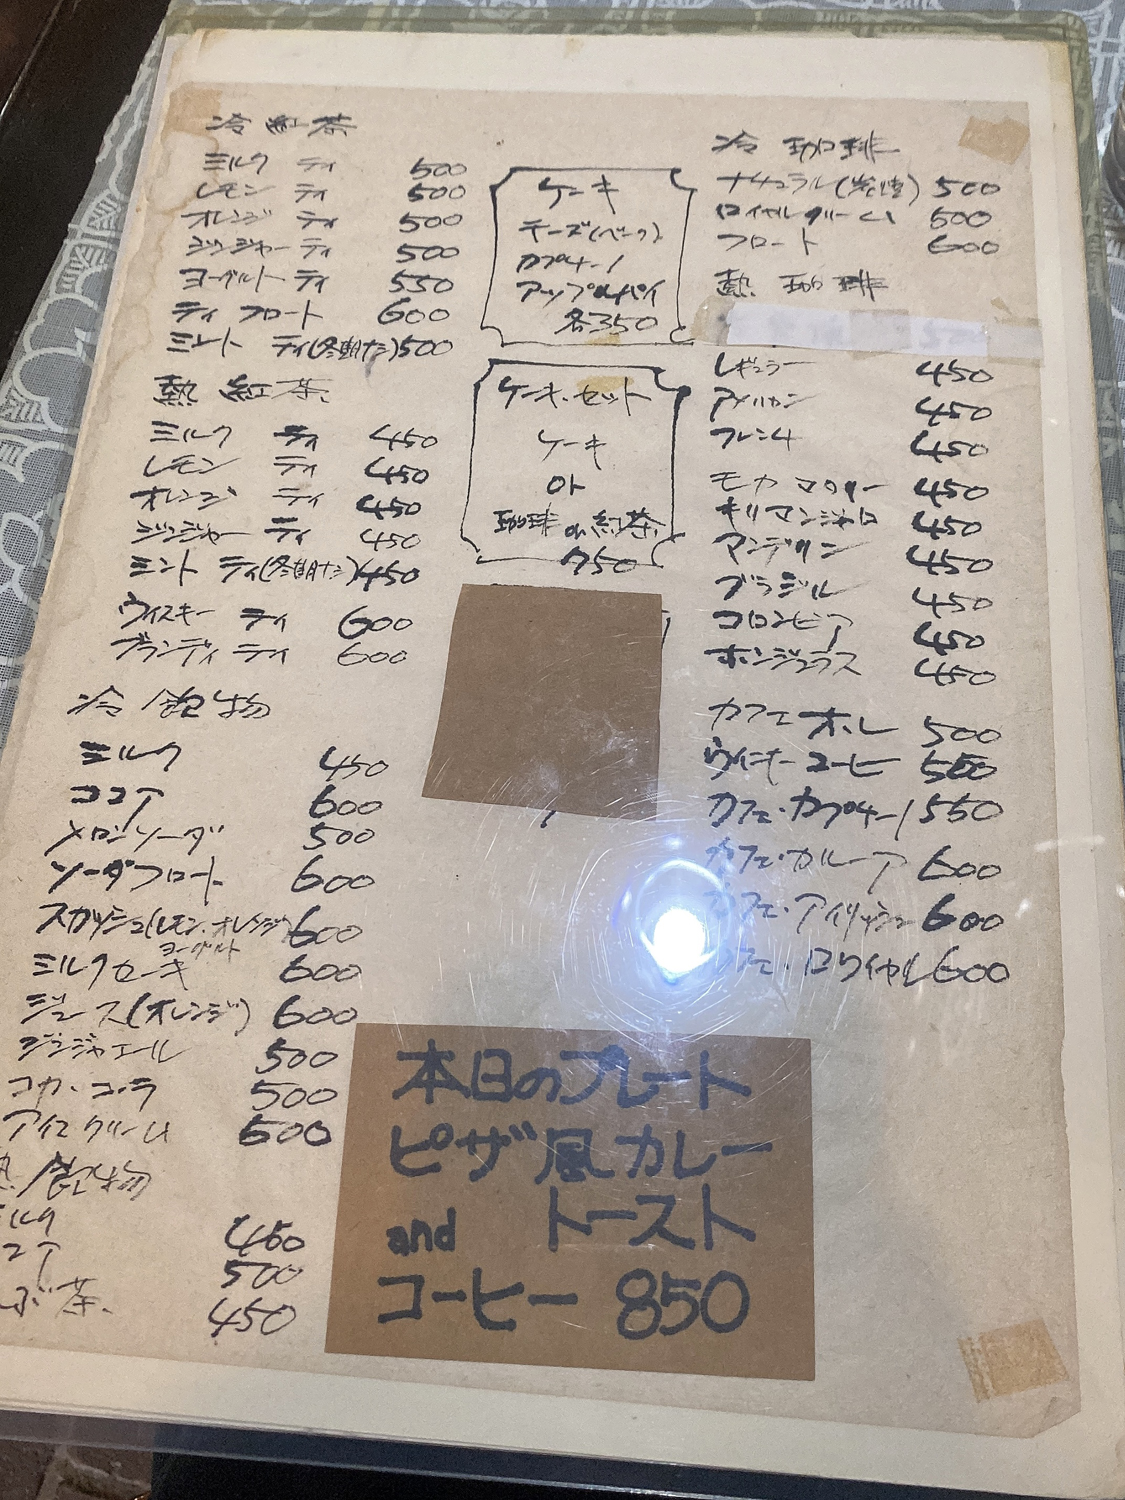 冷 紅茶
ミルク ティ 500
レモン ティ 500
オレンジ ティ 500
ジンジャー ティ 500
ヨーグルト ティ 550
ティ フロート 600
ミント ティ(冬期ナシ) 500
熱 紅茶
ミルク ティ 450
レモン ティ 450
オレンジ ティ 450
ジンジャー ティ 450
ミント ティ(冬期ナシ) 450
ウィスキー ティ 600
ブランディ ティ 600
冷 飲物
ミルク 450
ココア 600
メロンソーダ 500
ソーダフロート 600
スカッシュ(レモン・オレンジ) 600
ヨーグルト
ミルクセーキ 600
ジュース(オレンジ) 600
ジンジャエール 500
コカ・コーラ 500
アイスクリーム 500
熱 飲物
ミルク 450
ココア 500
ぶ茶 450
ケーキ
チーズ(ベーク)
カプチーノ
アップルパイ
各350
ケーキ・セット
ケーキ
or
珈琲 or 紅茶
750
冷 珈琲
ナチュラル(炭焼) 500
ロイヤルクリーム
フロート 600
熱 珈琲
レギュラー 450
アメリカン 450
フレンチ 450
モカ マタリー 450
キリマンジャロ 450
マンデリン 450
ブラジル 450
コロンビア 450
ホンジュラス 450
カフェオ・レ 500
ウィンナーコーヒー
カフェ・カプチーノ 550
カフェ・カルーア 600
カフェ・アイリッシュ 600
カフェ・ロワイヤル 600
本日のプレート
ピザ風カレー
and トースト
コーヒー 850